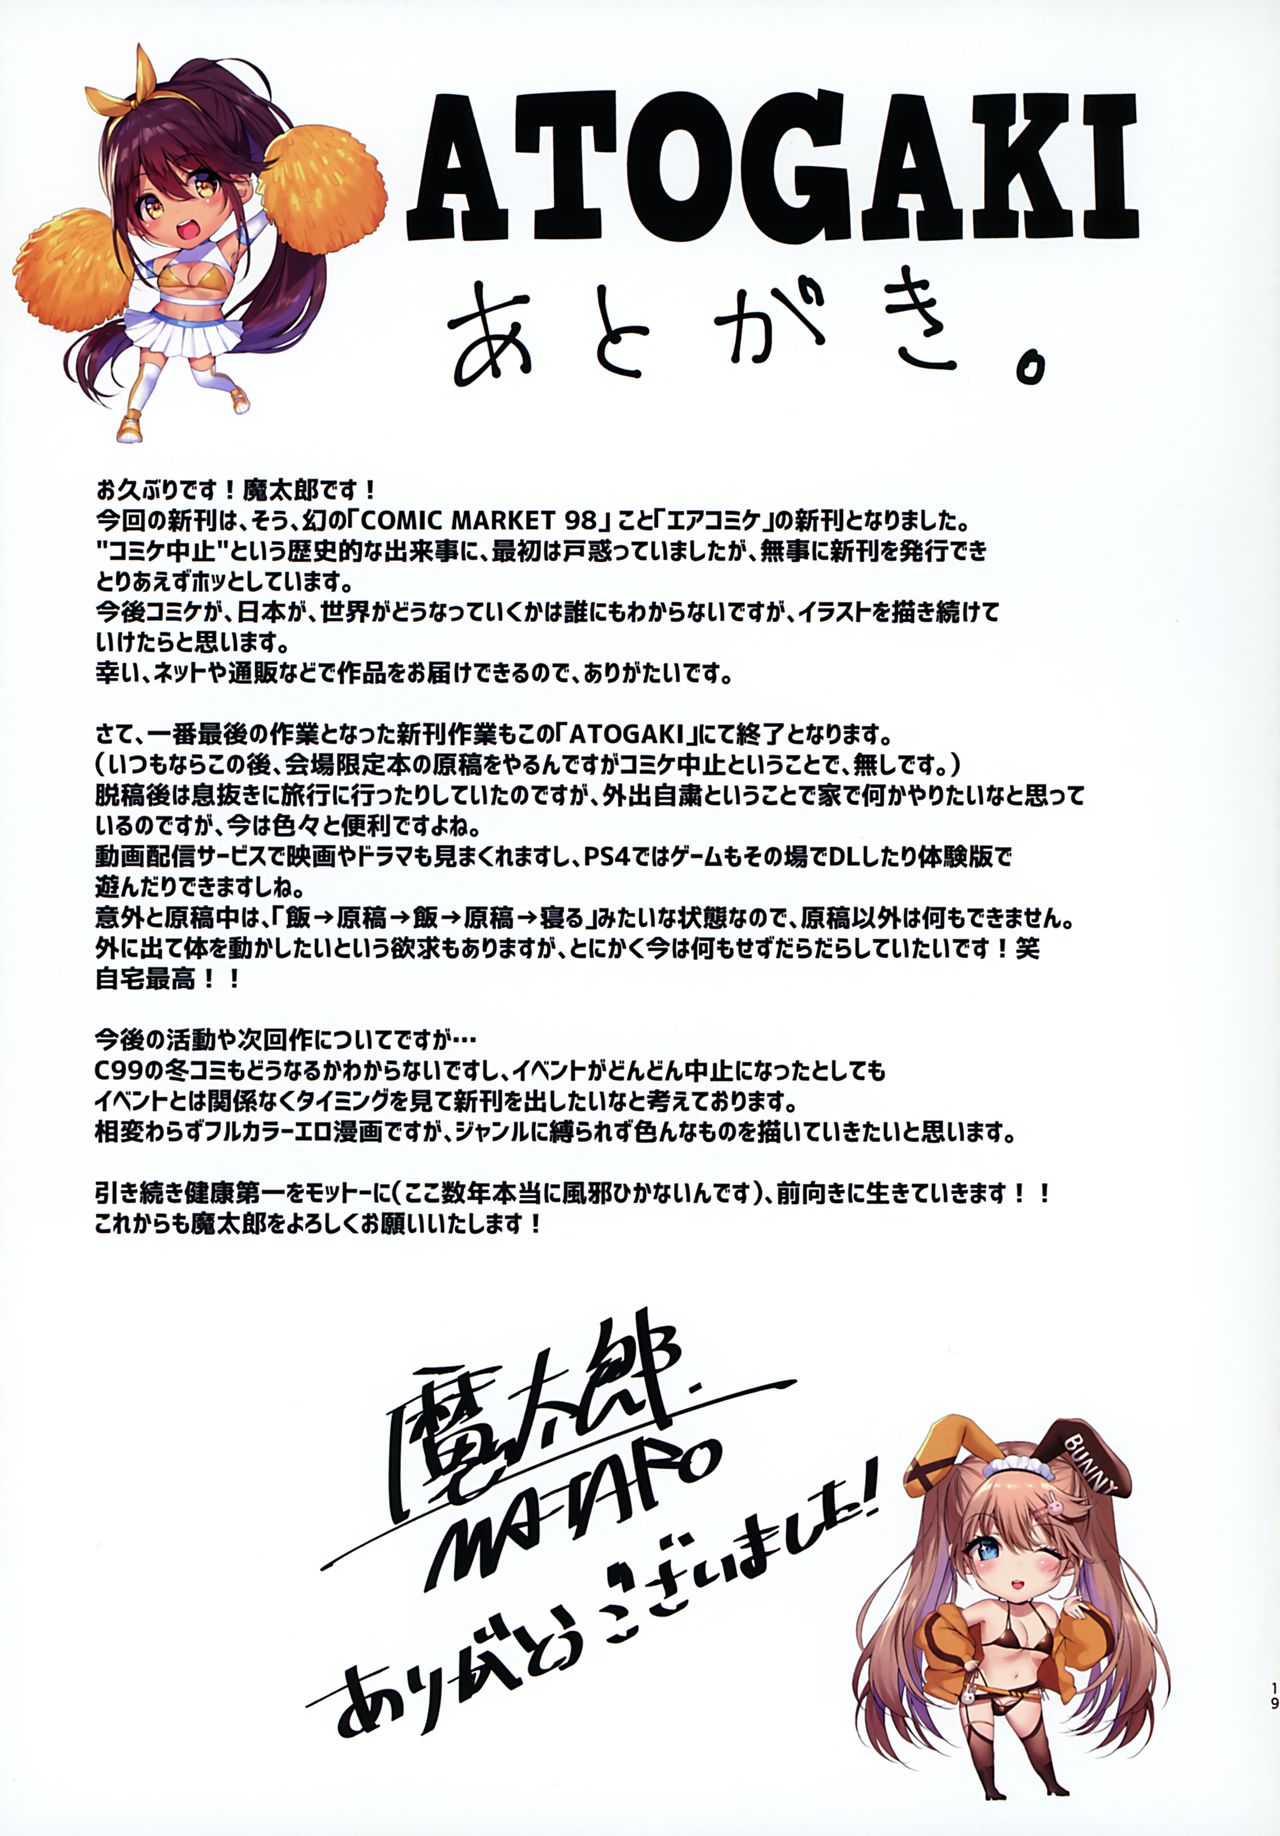 ATOGAKI
あとがき。
お久ぶりです！魔太郎です！
今回の新刊は、そう、幻の「COMIC MARKET 98」こと「エアコミケ」の新刊となりました。
"コミケ中止"という歴史的な出来事に、最初は戸惑っていましたが、無事に新刊を発行でき
とりあえずホッとしています。
今後コミケが、日本が、世界がどうなっていくかは誰にもわからないですが、イラストを描き続けて
いけたらと思います。
幸い、ネットや通販などで作品をお届けできるので、ありがたいです。
さて、一番最後の作業となった新刊作業もこの「ATOGAKI」にて終了となります。
（いつもならこの後、会場限定本の原稿をやるんですがコミケ中止ということで、無しです。）
脱稿後は息抜きに旅行に行ったりしていたのですが、外出自粛ということで家で何かやりたいなと思って
いるのですが、今は色々と便利ですよね。
動画配信サービスで映画やドラマも見まくれますし、PS4ではゲームもその場でDLしたり体験版で
遊んだりできますしね。
意外と原稿中は、「飯→原稿→飯→原稿→寝る」みたいな状態なので、原稿以外は何もできません。
外に出て体を動かしたいという欲求もありますが、とにかく今は何もせずだらだらしていたいです！笑
自宅最高！！
今後の活動や次回作についてですが…
C99の冬コミもどうなるかわからないですし、イベントがどんどん中止になったとしても
イベントとは関係なくタイミングを見て新刊を出したいなと考えております。
相変わらずフルカラーエロ漫画ですが、ジャンルに縛られず色んなものを描いていきたいと思います。
引き続き健康第一をモットーに（ここ数年本当に風邪ひかないんです）、前向きに生きていきます！！
これからも魔太郎をよろしくお願いいたします！
魔太郎.
MATARO
ありがとうございました！
BUNNY
19